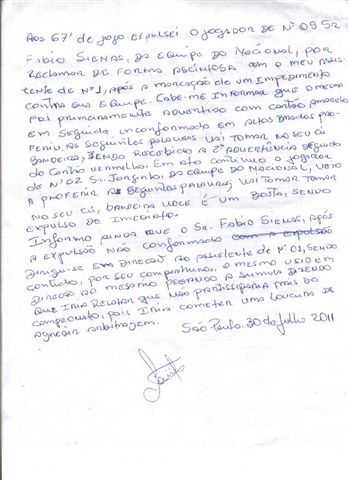 Aos 67' de jogo expulsei o jogador de nº 09 Sr
Fabio Sienas, da Equipe do Nacional, por
reclamar de forma acintosa com o meu assis-
tente de nº 1, após a marcação de um impedimento
contra sua Equipe. Cabe-me informar que o mesmo
foi primeiramente advertido com cartão amarelo
em seguida, inconformado em altos brados pro-
feriu, as seguintes palavras vai tomar no seu cú
bandeira, sendo recebido a 2ª advertência seguido
do cartão vermelho. Em ato contínuo o jogador
de nº 02 Sr. Jorginho da Equipe do Nacional, veio
a proferir as seguintes palavras, vai tomar tomar
no seu cú, bandeira você é um bosta, sendo
expulso de imediato.
Informo ainda que o Sr. Fabio Sienas, após
a expulsão não conformado com a expulsão
dirigiu-se em direção ao assistente de nº 01, sendo
contido, por seu companheiro. O mesmo veio em
direção ao mesário pegando a sumula dizendo
que iria relatar que não participaria mais do
campeonato, pois iria cometer uma loucura de
agredir arbitragem.
São Paulo, 30 de Julho 2011